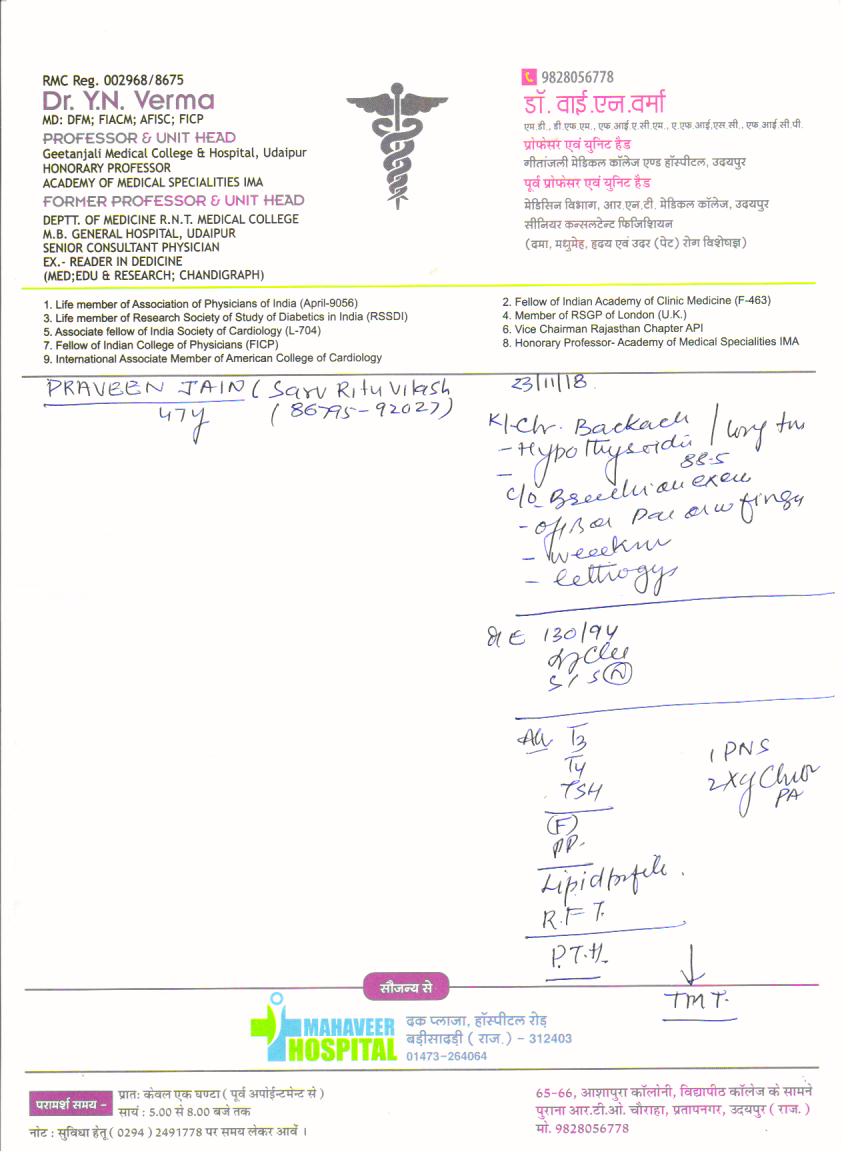 RMC Reg. 002968/8675
Dr. Y.N. Verma
MD: DFM; FIACM; AFISC; FICP
PROFESSOR & UNIT HEAD
Geetanjali Medical College & Hospital, Udaipur
HONORARY PROFESSOR
ACADEMY OF MEDICAL SPECIALITIES IMA
FORMER PROFESSOR & UNIT HEAD
DEPTT. OF MEDICINE R.N.T. MEDICAL COLLEGE
M.B. GENERAL HOSPITAL, UDAIPUR
SENIOR CONSULTANT PHYSICIAN
EX.- READER IN DEDICINE
(MED;EDU & RESEARCH; CHANDIGRAPH)
9828056778
डॉ. वाई.एन.वर्मा
एम.डी., डी.एफ.एम., एफ.आई.ए.सी.एम., ए.एफ.आई.एस.सी., एफ.आई.सी.पी.
प्रोफेसर एवं युनिट हैड
गीतांजली मेडिकल कॉलेज एण्ड हॉस्पीटल, उदयपुर
पूर्व प्रोफेसर एवं युनिट हैड
मेडिसिन विभाग, आर.एन.टी. मेडिकल कॉलेज, उदयपुर
सीनियर कन्सलटेन्ट फिजिशियन
(दमा, मधुमेह, हृदय एवं उदर (पेट) रोग विशेषज्ञ)
1. Life member of Association of Physicians of India (April-9056)
2. Fellow of Indian Academy of Clinic Medicine (F-463)
3. Life member of Research Society of Study of Diabetics in India (RSSDI)
4. Member of RSGP of London (U.K.)
5. Associate fellow of India Society of Cardiology (L-704)
6. Vice Chairman Rajasthan Chapter API
7. Fellow of Indian College of Physicians (FICP)
8. Honorary Professor- Academy of Medical Specialities IMA
9. International Associate Member of American College of Cardiology
PRAVEEN JAIN ( Sarv Ritu Vilash
47y (86795-92027)
23/11/18.
K/Ch. Backach
88.5
C/o
130/94
S1 S2 (N)
T3
T4
TSH
(F)
PP.
Lipid profile.
R.F.T.
P.T.H.
1 PNS
2 PA
TMT.
सौजन्य से
MAHAVEER
HOSPITAL
ढक प्लाजा, हॉस्पीटल रोड़
बड़ीसादड़ी ( राज.) - 312403
01473-264064
परामर्श समय -
प्रातः केवल एक घण्टा ( पूर्व अपोईन्टमेन्ट से )
सायं : 5.00 से 8.00 बजे तक
नोट : सुविधा हेतू ( 0294 ) 2491778 पर समय लेकर आवें ।
65-66, आशापुरा कॉलोनी, विद्यापीठ कॉलेज के सामने
पुराना आर.टी.ओ. चौराहा, प्रतापनगर, उदयपुर ( राज. )
मो. 9828056778